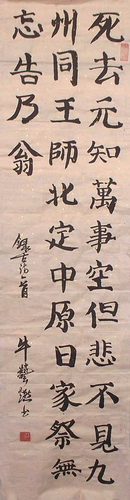 死去元知萬事空但悲不見九
州同王師北定中原日家祭無
忘告乃翁
錄古詩一首